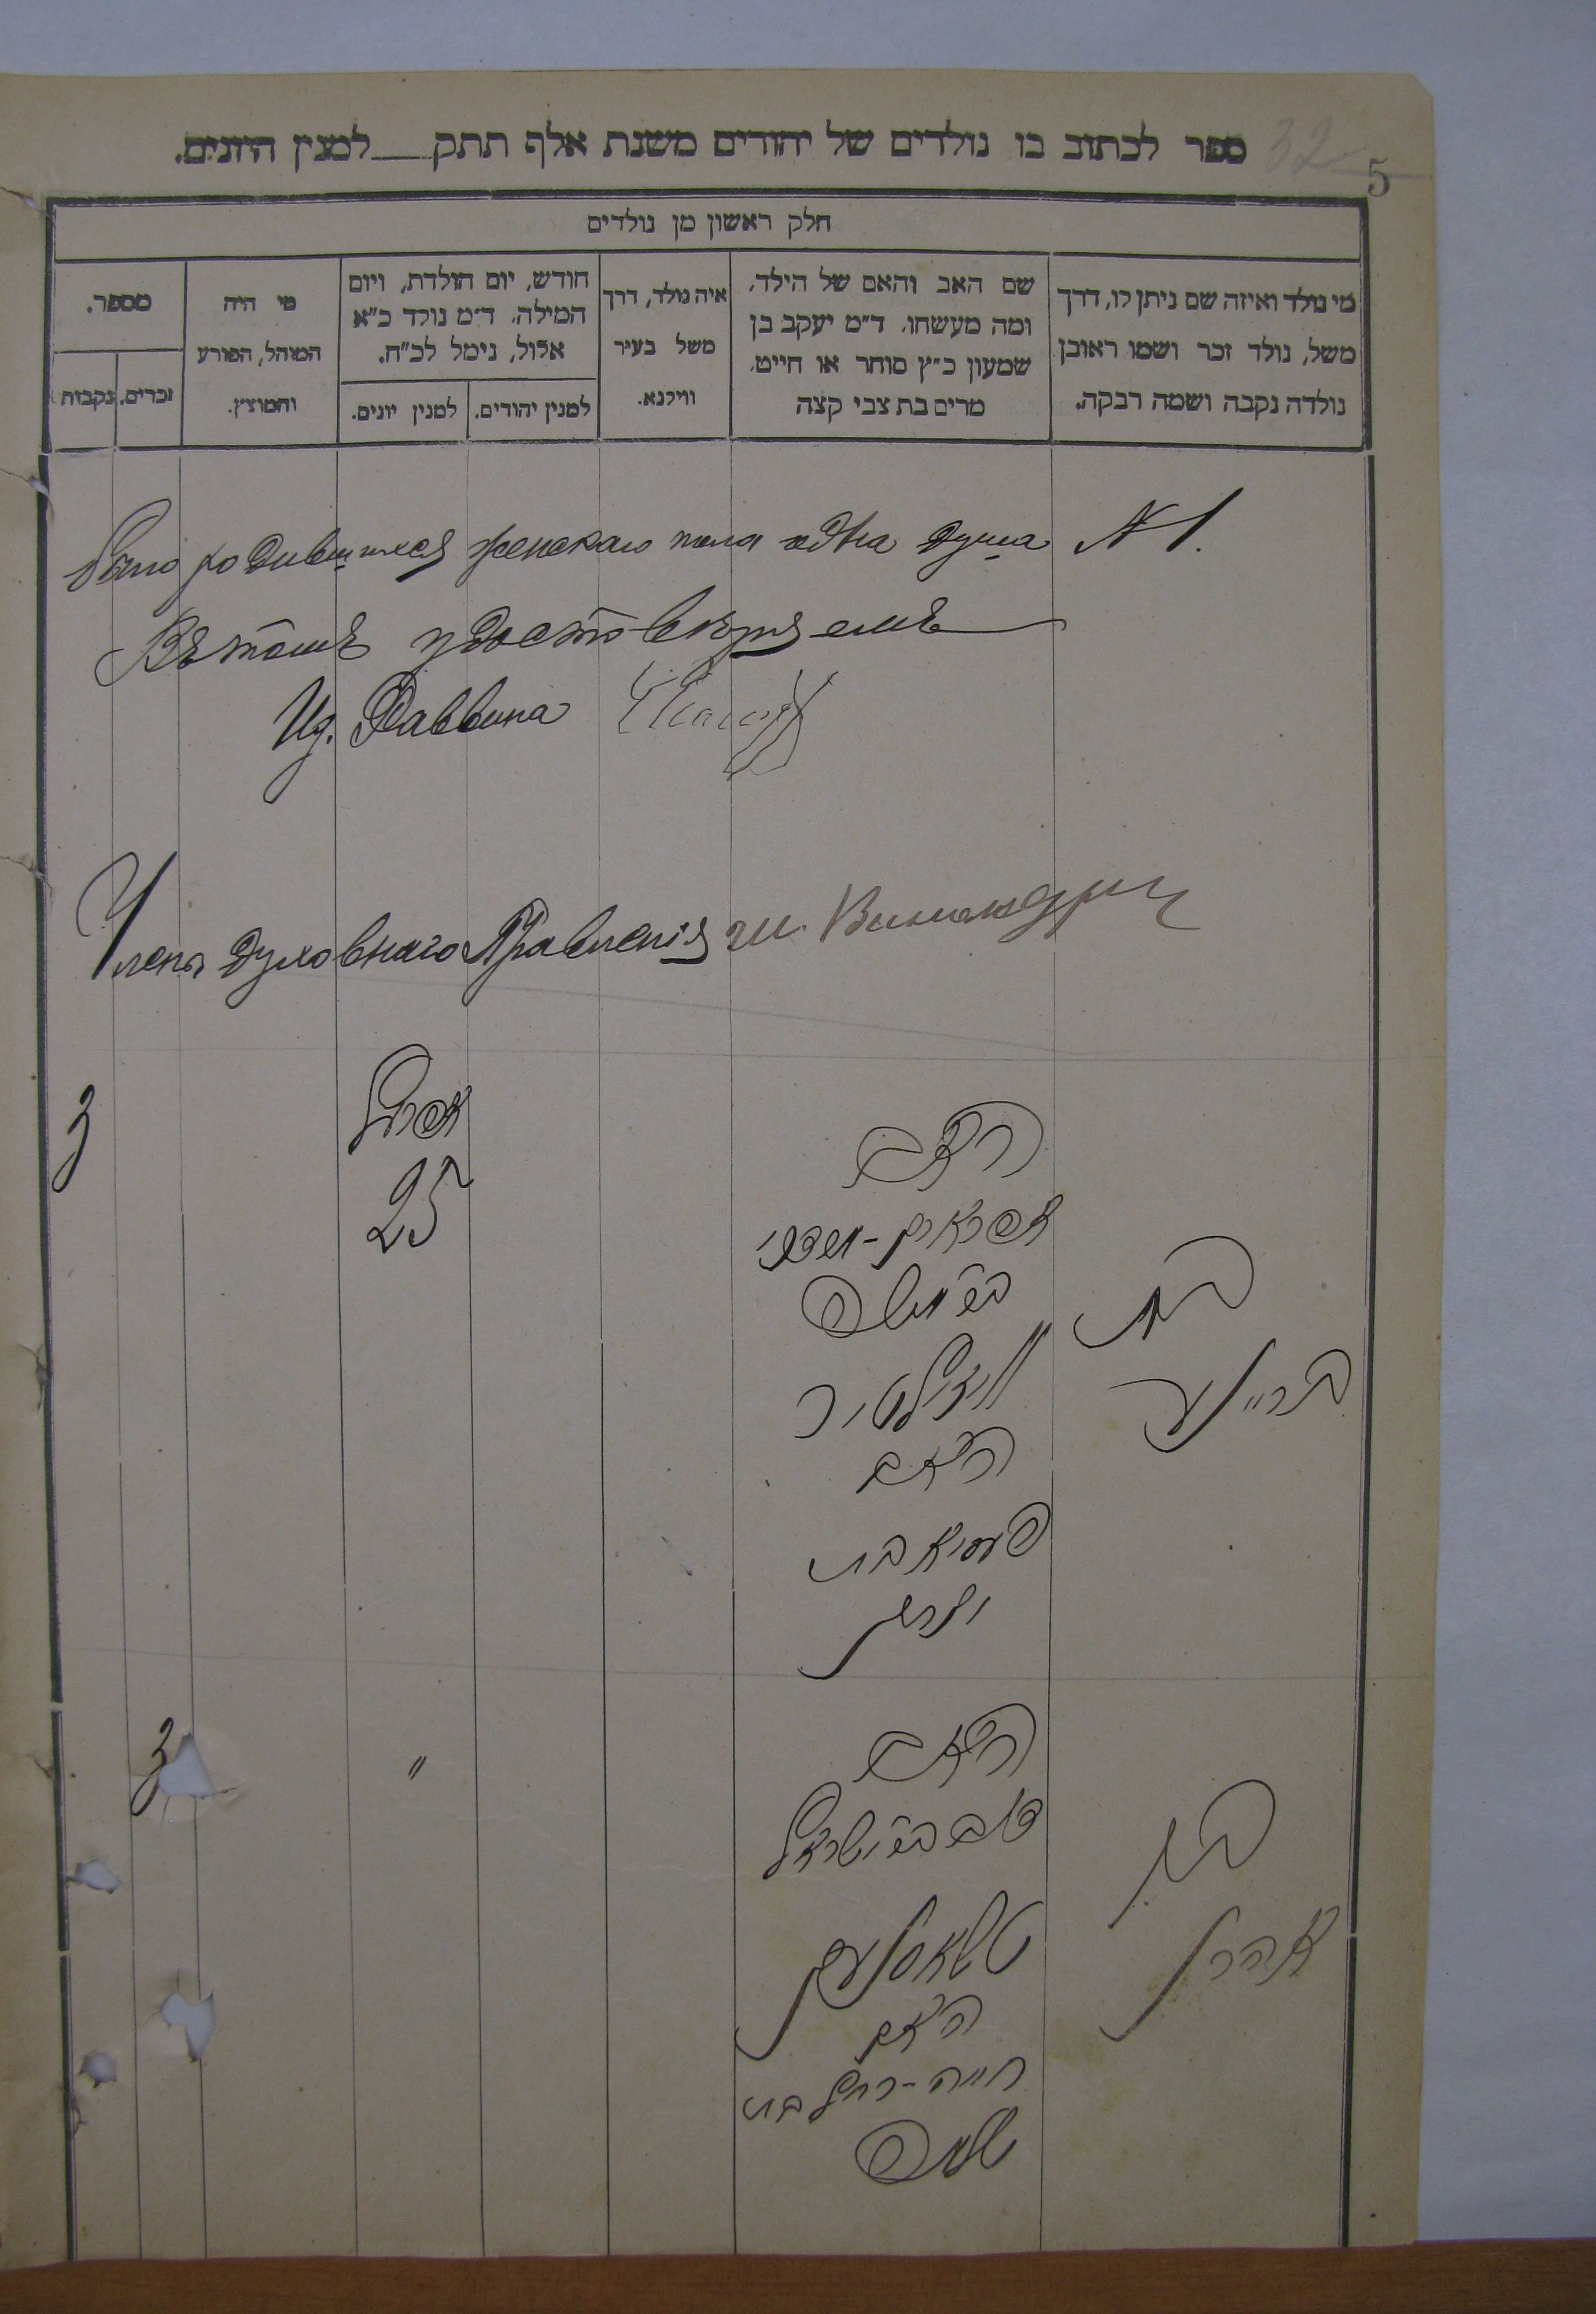 ספר לכתוב בו נולדים של יהודים משנת אלף תתק__למנין היונים.
32
5
חלק ראשון מן נולדים
מי נולד ואיזה שם ניתן לו, דרך
משל, נולד זכר ושמו ראובן
נולדה נקבה ושמה רבקה.
שם האב והאם של הילד,
ומה מעשהו. ד״מ יעקב בן
שמעון כ״ץ סוחר או חייט.
מרים בת צבי קצה
איה נולד, דרך
משל בעיר
ווילנא.
חודש, יום הולדת, ויום
המילה. ד״מ נולד כ״א
אלול, נימל לכ״ח.
למנין יהודים.
למנין יונים.
מי היה
המוהל, הפורע
והמוצץ.
מספר.
זכרים.
נקבות
Было родившихся женскаго пола одна душа № 1.
Въ томъ удостовѣряемъ
Ид. Раввина
Члены духовнаго Правленія Ш.
בת
ביילע
האב
אפרים-
האם
בת
אפריל
25
3
בן
אהרן
האב
ליב ב״ר ישראל
האם
חיה-רחל בת
שלמה
"
3